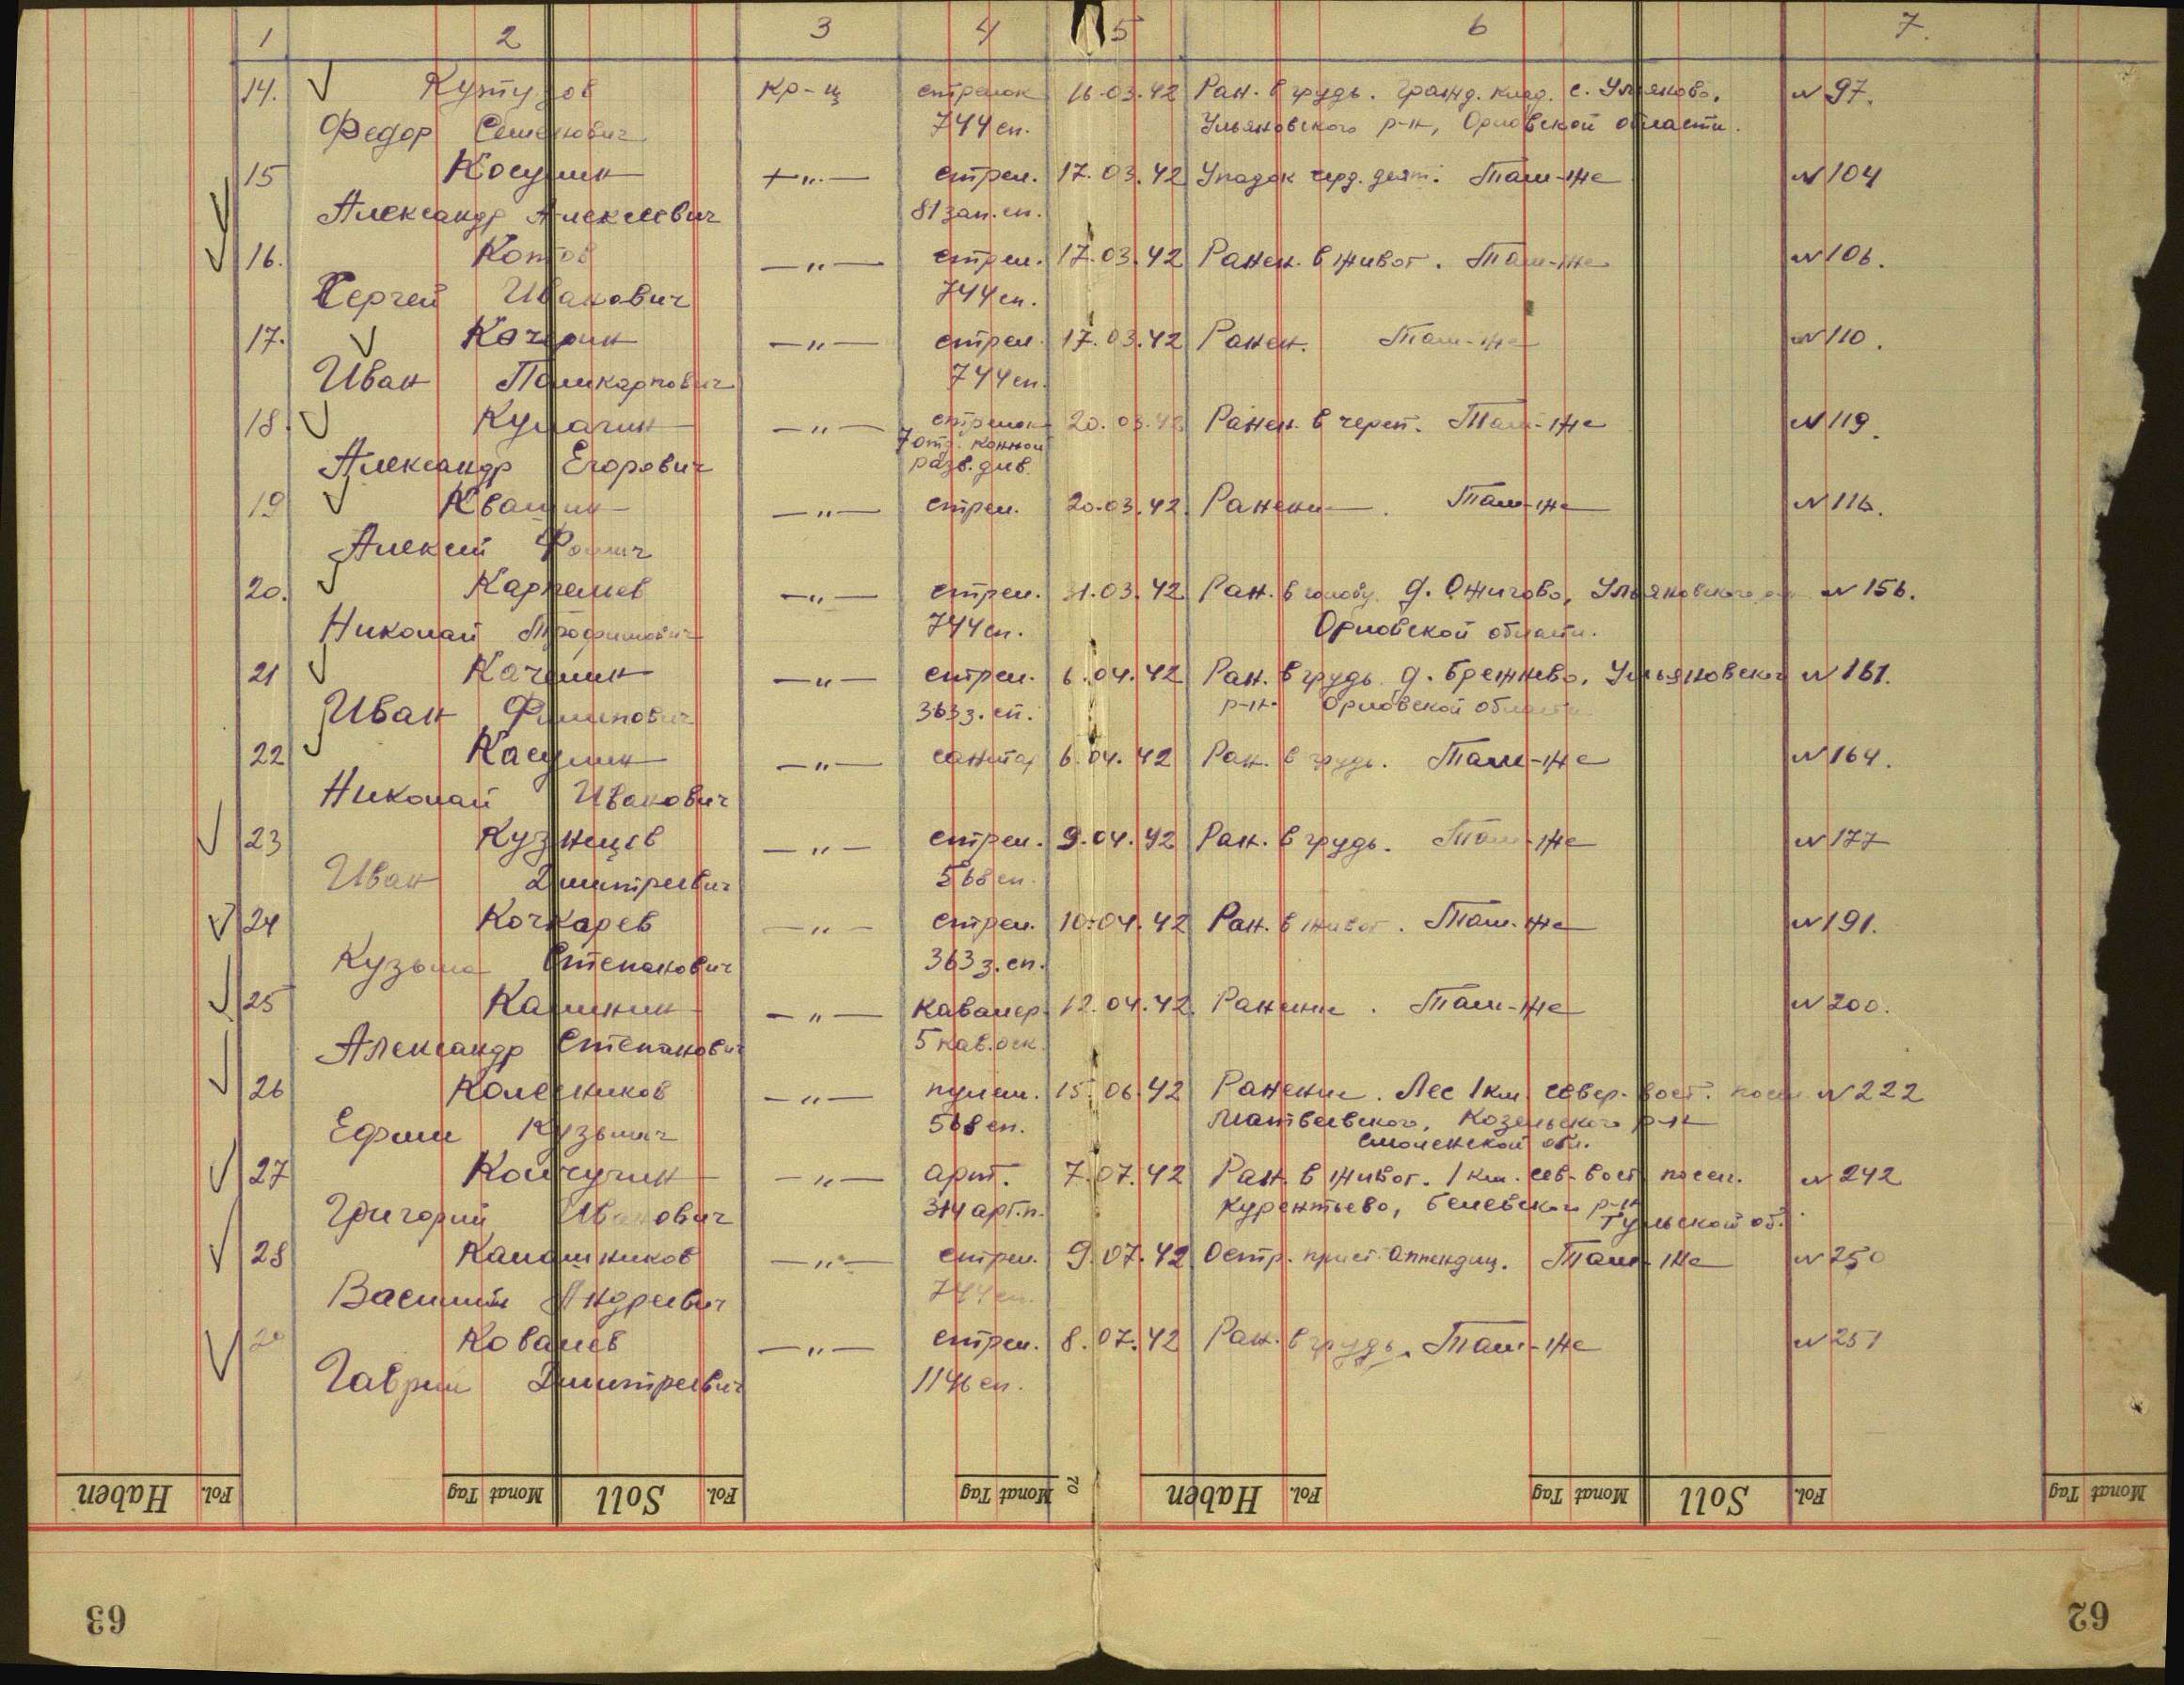 1 2 3 4 5 6 7.
14. Кутузов кр-ц стрелок 16.03.42 Ран. в грудь. гражд. клад. с. Ульяново, N 97.
Федор Семенович 744 сп. Ульяновского р-н, Орловской области.
15 Косулин —„— стрел. 17.03.42 Упадок серд. деят. Там-же N 104
Александр Алексеевич 81 зап. сп.
16. Котов —„— стрел. 17.03.42 Ранен. в живот. Там-же N 106.
Сергей Иванович 744 сп.
17. —„— стрел. 17.03.42 Ранен. Там-же N 110.
Иван Поликарпович 744 сп.
18. Кулагин —„— стрелок 20.03.42 Ранен. в череп. Там-же N 119.
7 отд. конной
Александр Егорович разв. див.
19 Квашин —„— стрел. 20.03.42. Ранени—. Там-же N 116.
Алексей Фомич
20. Карпалев —„— стрел. 31.03.42 Ран. в голову. д. Ожигово, Ульяновского р-н N 156.
Николай Трофимович 744 сп. Орловской области.
21 Качалин —„— стрел. 6.04.42 Ран. в грудь. д. Брежнево, Ульяновског N 161.
Иван Филипович 363 з. сп. р-н. Орловской области
22 Касулин —„— санитар 6.04.42 Ран. в грудь. Там-же N 164.
Николай Иванович
23 Кузнецов —„— стрел. 9.04.42 Ран. в грудь. Там-же N 177
Иван Дмитриевич 568 сп.
24 Кочкарев —„— стрел. 10.04.42 Ран. в живот. Там-же N 191.
Кузьма Степанович 363 з. сп.
25 Калинин —„— кавалер. 12.04.42. Ранение. Там-же N 200.
Александр Степанович 5 кав.
26 Колесников —„— пулем. 15.06.42 Ранение. Лес 1 км. север-вост. посел. N 222
Ефим Кузьмич 568 сп. Матвеевского, Козельского р-н
Смоленской обл.
27 Колчугин —„— арт. 7.07.42 Ран. в живот. 1 км. сев-вост посел. N 242
Григорий Иванович 314 арт.п. Курентьево, Белевский р-н
Тульской об.
28 Калашников —„— стрел. 9.07.42 Остр. прист. Аппендиц. Там-же N 250
Василий Андреевич 744 сп.
29 Ковалев —„— стрел. 8.07.42 Ран. в грудь. Там-же N 251
Гаврил Дмитриевич 1146 сп.
Haben Fol. Tag Monat Soll Fol. Tag Monat 70 Haben Fol. Tag Monat Soll Fol. Tag Monat
63 62